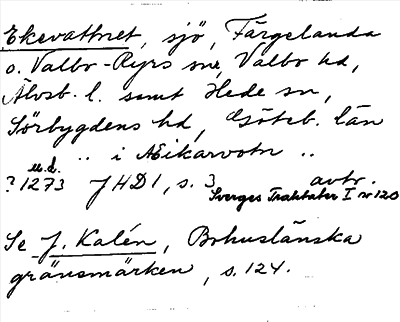 Ekevattnet, sjö, Färgelanda
o. Valbo-Ryrs snr, Valbo hd,
Älvsb. l. samt Hede sn,
Sörbygdens hd, Göteb. län
.. i Æikarvotn ..
u.d.
? 1273 JHD 1, s. 3 avtr.
Sverges Traktater I nr 120
Se J. Kalén, Bohuslänska
gränsmärken, s. 124.